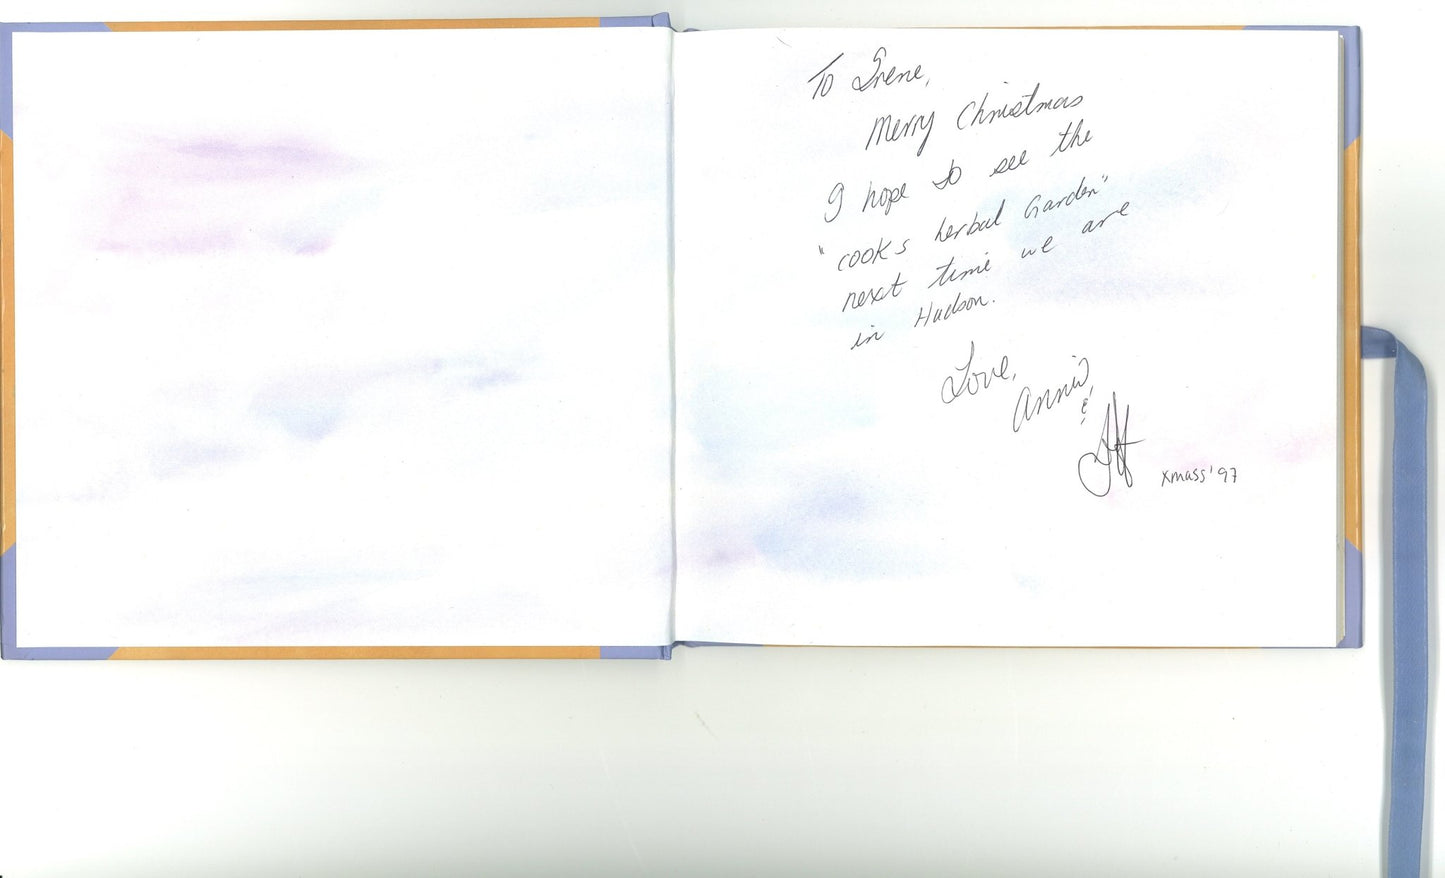 To Irene,
Merry Christmas
I hope to see the
"cooks herbal Garden"
next time we are
in Hudson.
Love,
Annie
&
Xmass '97